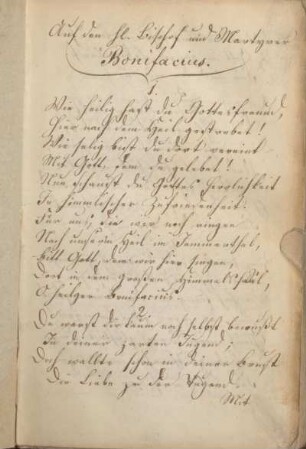 Auf den hl. Bischof und Martyrer
Bonifacius.
1.
Wie heilig hast du Gottesfreund,
Hier nach dem Heil gestrebet!
Wie selig bist du dort vereint
Mit Gott, dem du gelebet!
Nun schaust du Gottes Herrlichkeit
In himmlischer Zufriedenheit.
Für uns, die wir noch ringen
Nach unserm Heil im Jammerthal,
Bitt Gott, dem wir hier singen,
Dort in dem großen Himmelssaal,
O heilger Bonifacius.
2.
Du warst dir kaum noch selbst bewußt
In deiner zarten Jugend;
Doch wallte schon in deiner Brust
Die Liebe zu der Tugend.
Mit